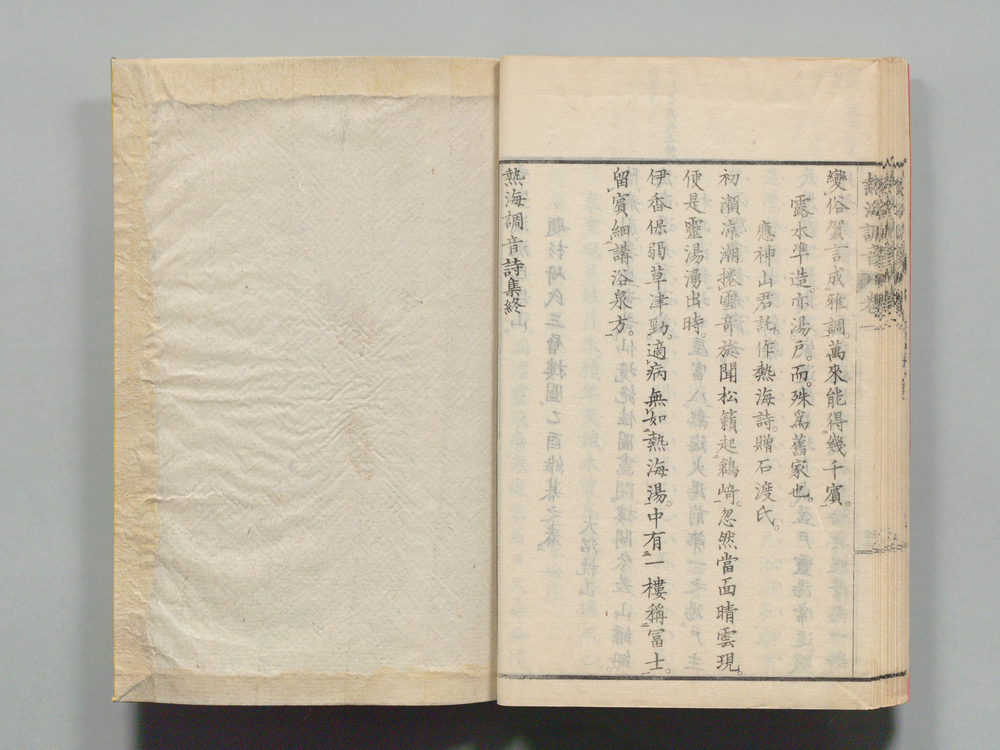 熱海調音 卷一
變俗質言成雅調萬來能得幾千賓。
露木準造。亦湯戶。而殊爲舊家也。
應神山君託。作熱海詩。贈石渡氏。
初瀨凉潮捲雪奇旋聞松籟起鶴崎。忽然當面晴雲現。
便是靈湯湧出時。
伊香保弱草津勁。適病無如熱海湯。中有一樓稱冨士。
留賓細講浴泉方。
熱海調音詩集終